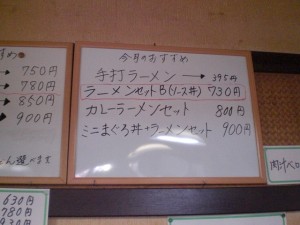 今月のおすすめ
手打ラーメン → 395円
ラーメンセットB(ソース丼) 730円
カレーラーメンセット 800円
ミニまぐろ丼+ラーメンセット 900円
すめ
→ 750円
→ 780円
→ 850円
→ 900円
630円
780円
930円